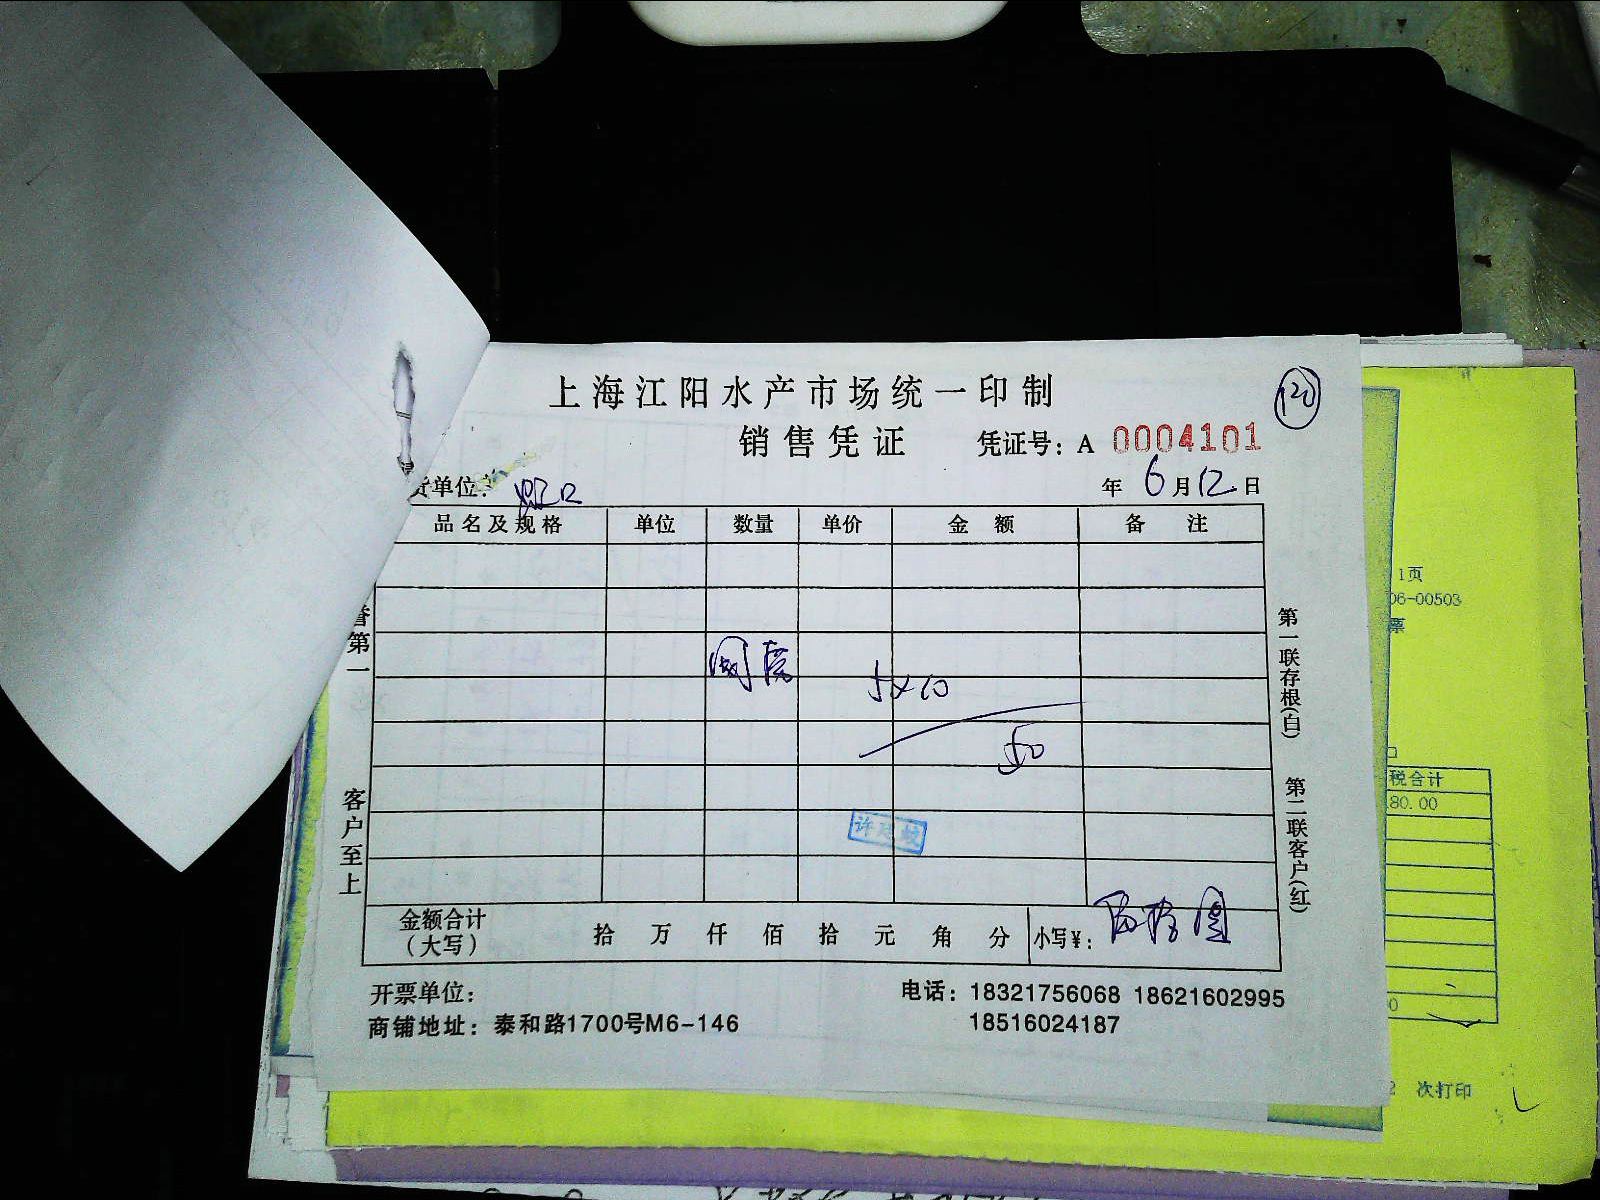 上海江阳水产市场统一印制
120
销售凭证 凭证号：A 0004101
货单位：
年 6月12日
品名及规格 单位 数量 单价 金额 备注
5×10
50
金额合计（大写） 拾 万 仟 佰 拾 元 角 分 小写¥： 伍拾圆
开票单位： 电话：18321756068 18621602995
商铺地址：泰和路1700号M6-146 18516024187
誉第一
客户至上
第一联存根(白)
第二联客户(红)
1页
06-00503
票
税合计
80.00
次打印